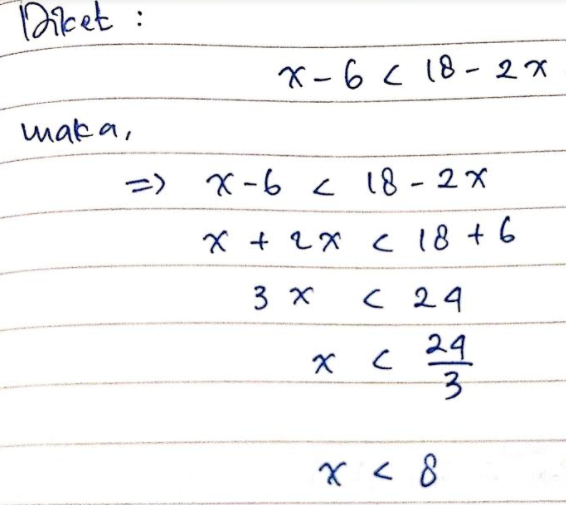 Diket :
x - 6 < 18 - 2x
maka,
=> x - 6 < 18 - 2x
x + 2x < 18 + 6
3x < 24
x < 24/3
x < 8